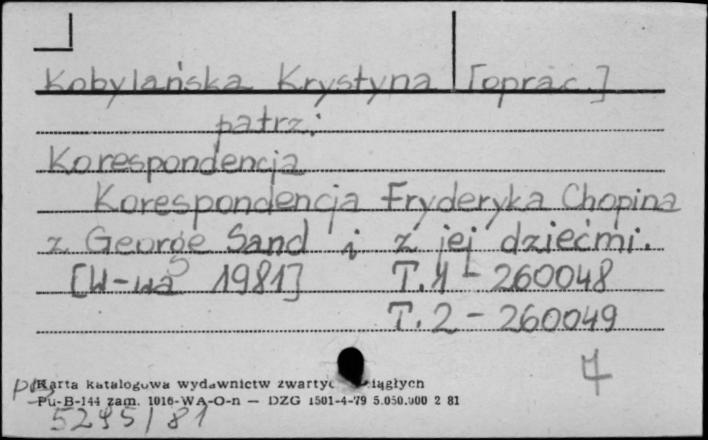 Kobylańska Krystyna [oprac.]
patrz:
Korespondencja
Korespondencja Fryderyka Chopina
z George Sand i z jej dziećmi.
[W-wa 1981] T.1 - 260048
T.2 - 260049
Karta katalogowa wydawnictw zwartych ciągłych
Pu-B-144 zam. 1016-WA-O-n — DZG 1501-4-79 5.050.000 2 81
5295/81